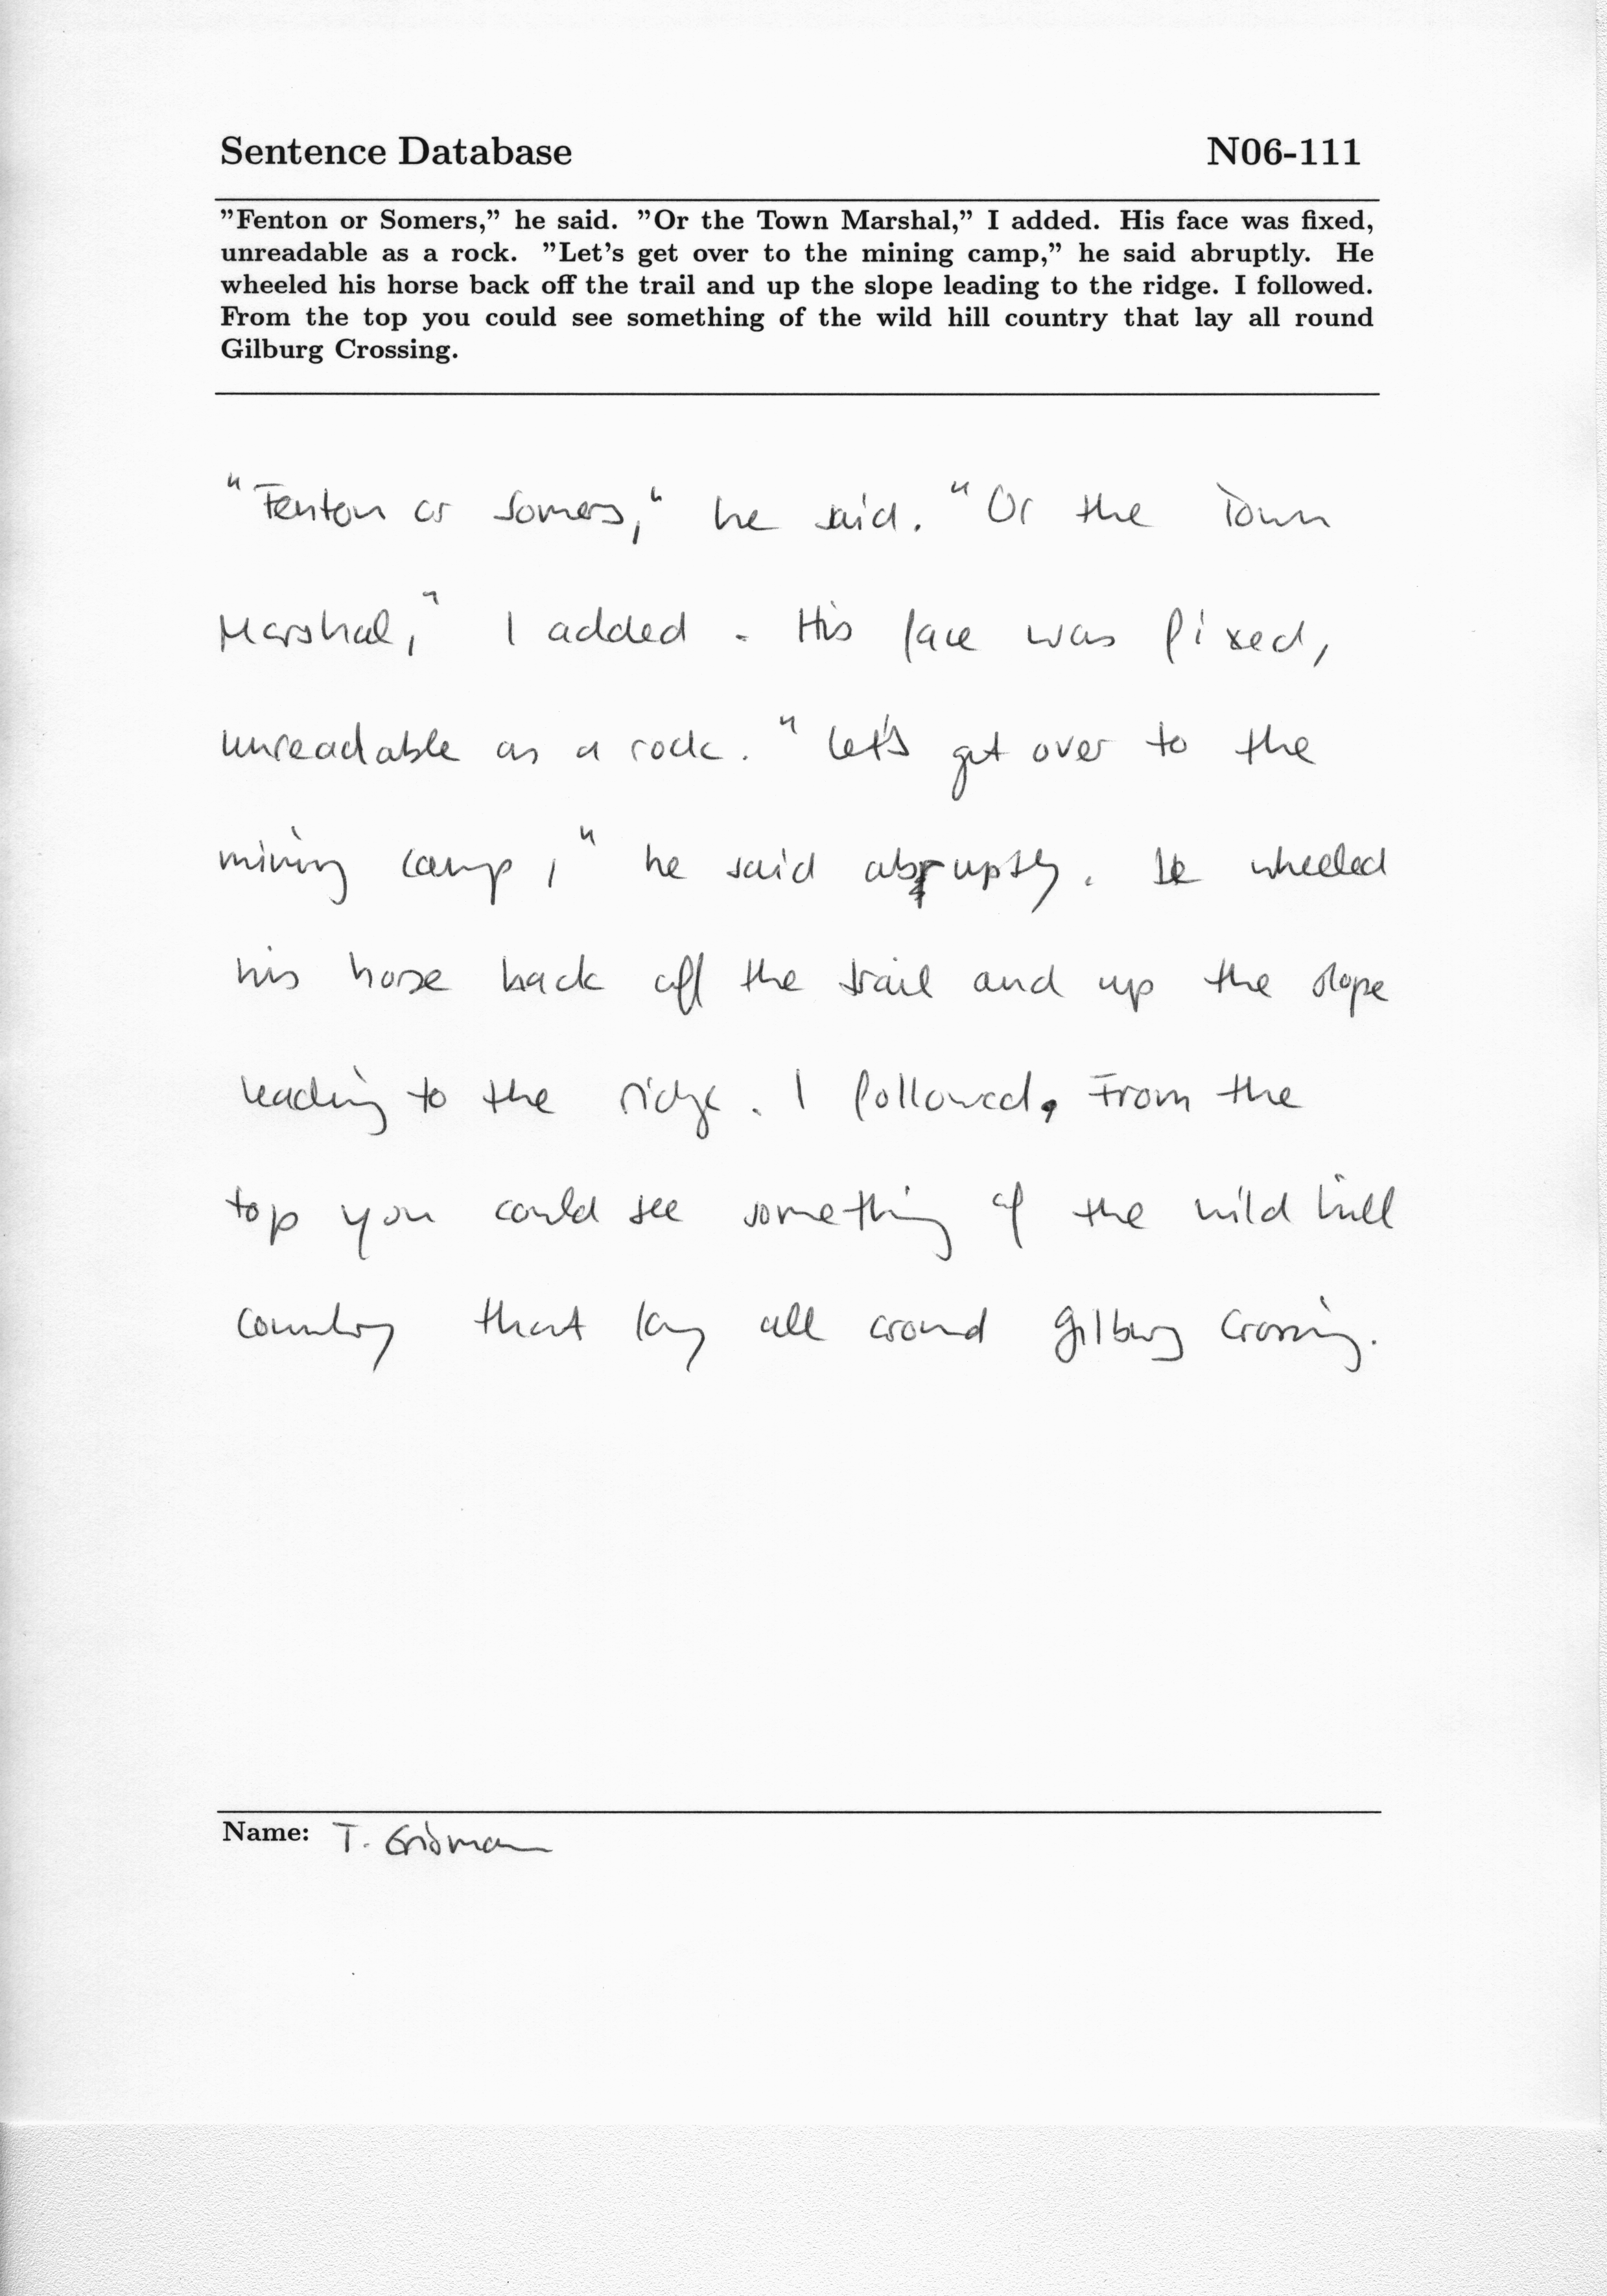 Sentence Database N06-111
"Fenton or Somers," he said. "Or the Town Marshal," I added. His face was fixed,
unreadable as a rock. "Let's get over to the mining camp," he said abruptly. He
wheeled his horse back off the trail and up the slope leading to the ridge. I followed.
From the top you could see something of the wild hill country that lay all round
Gilburg Crossing.
"Fenton or Somers," he said. "Or the Town
Marshal," I added. His face was fixed,
unreadable as a rock. "Let's get over to the
mining camp," he said abruptly. He wheeled
his horse back off the trail and up the slope
leading to the ridge. I followed. From the
top you could see something of the wild hill
country that lay all around Gilburg Crossing.
Name: T.